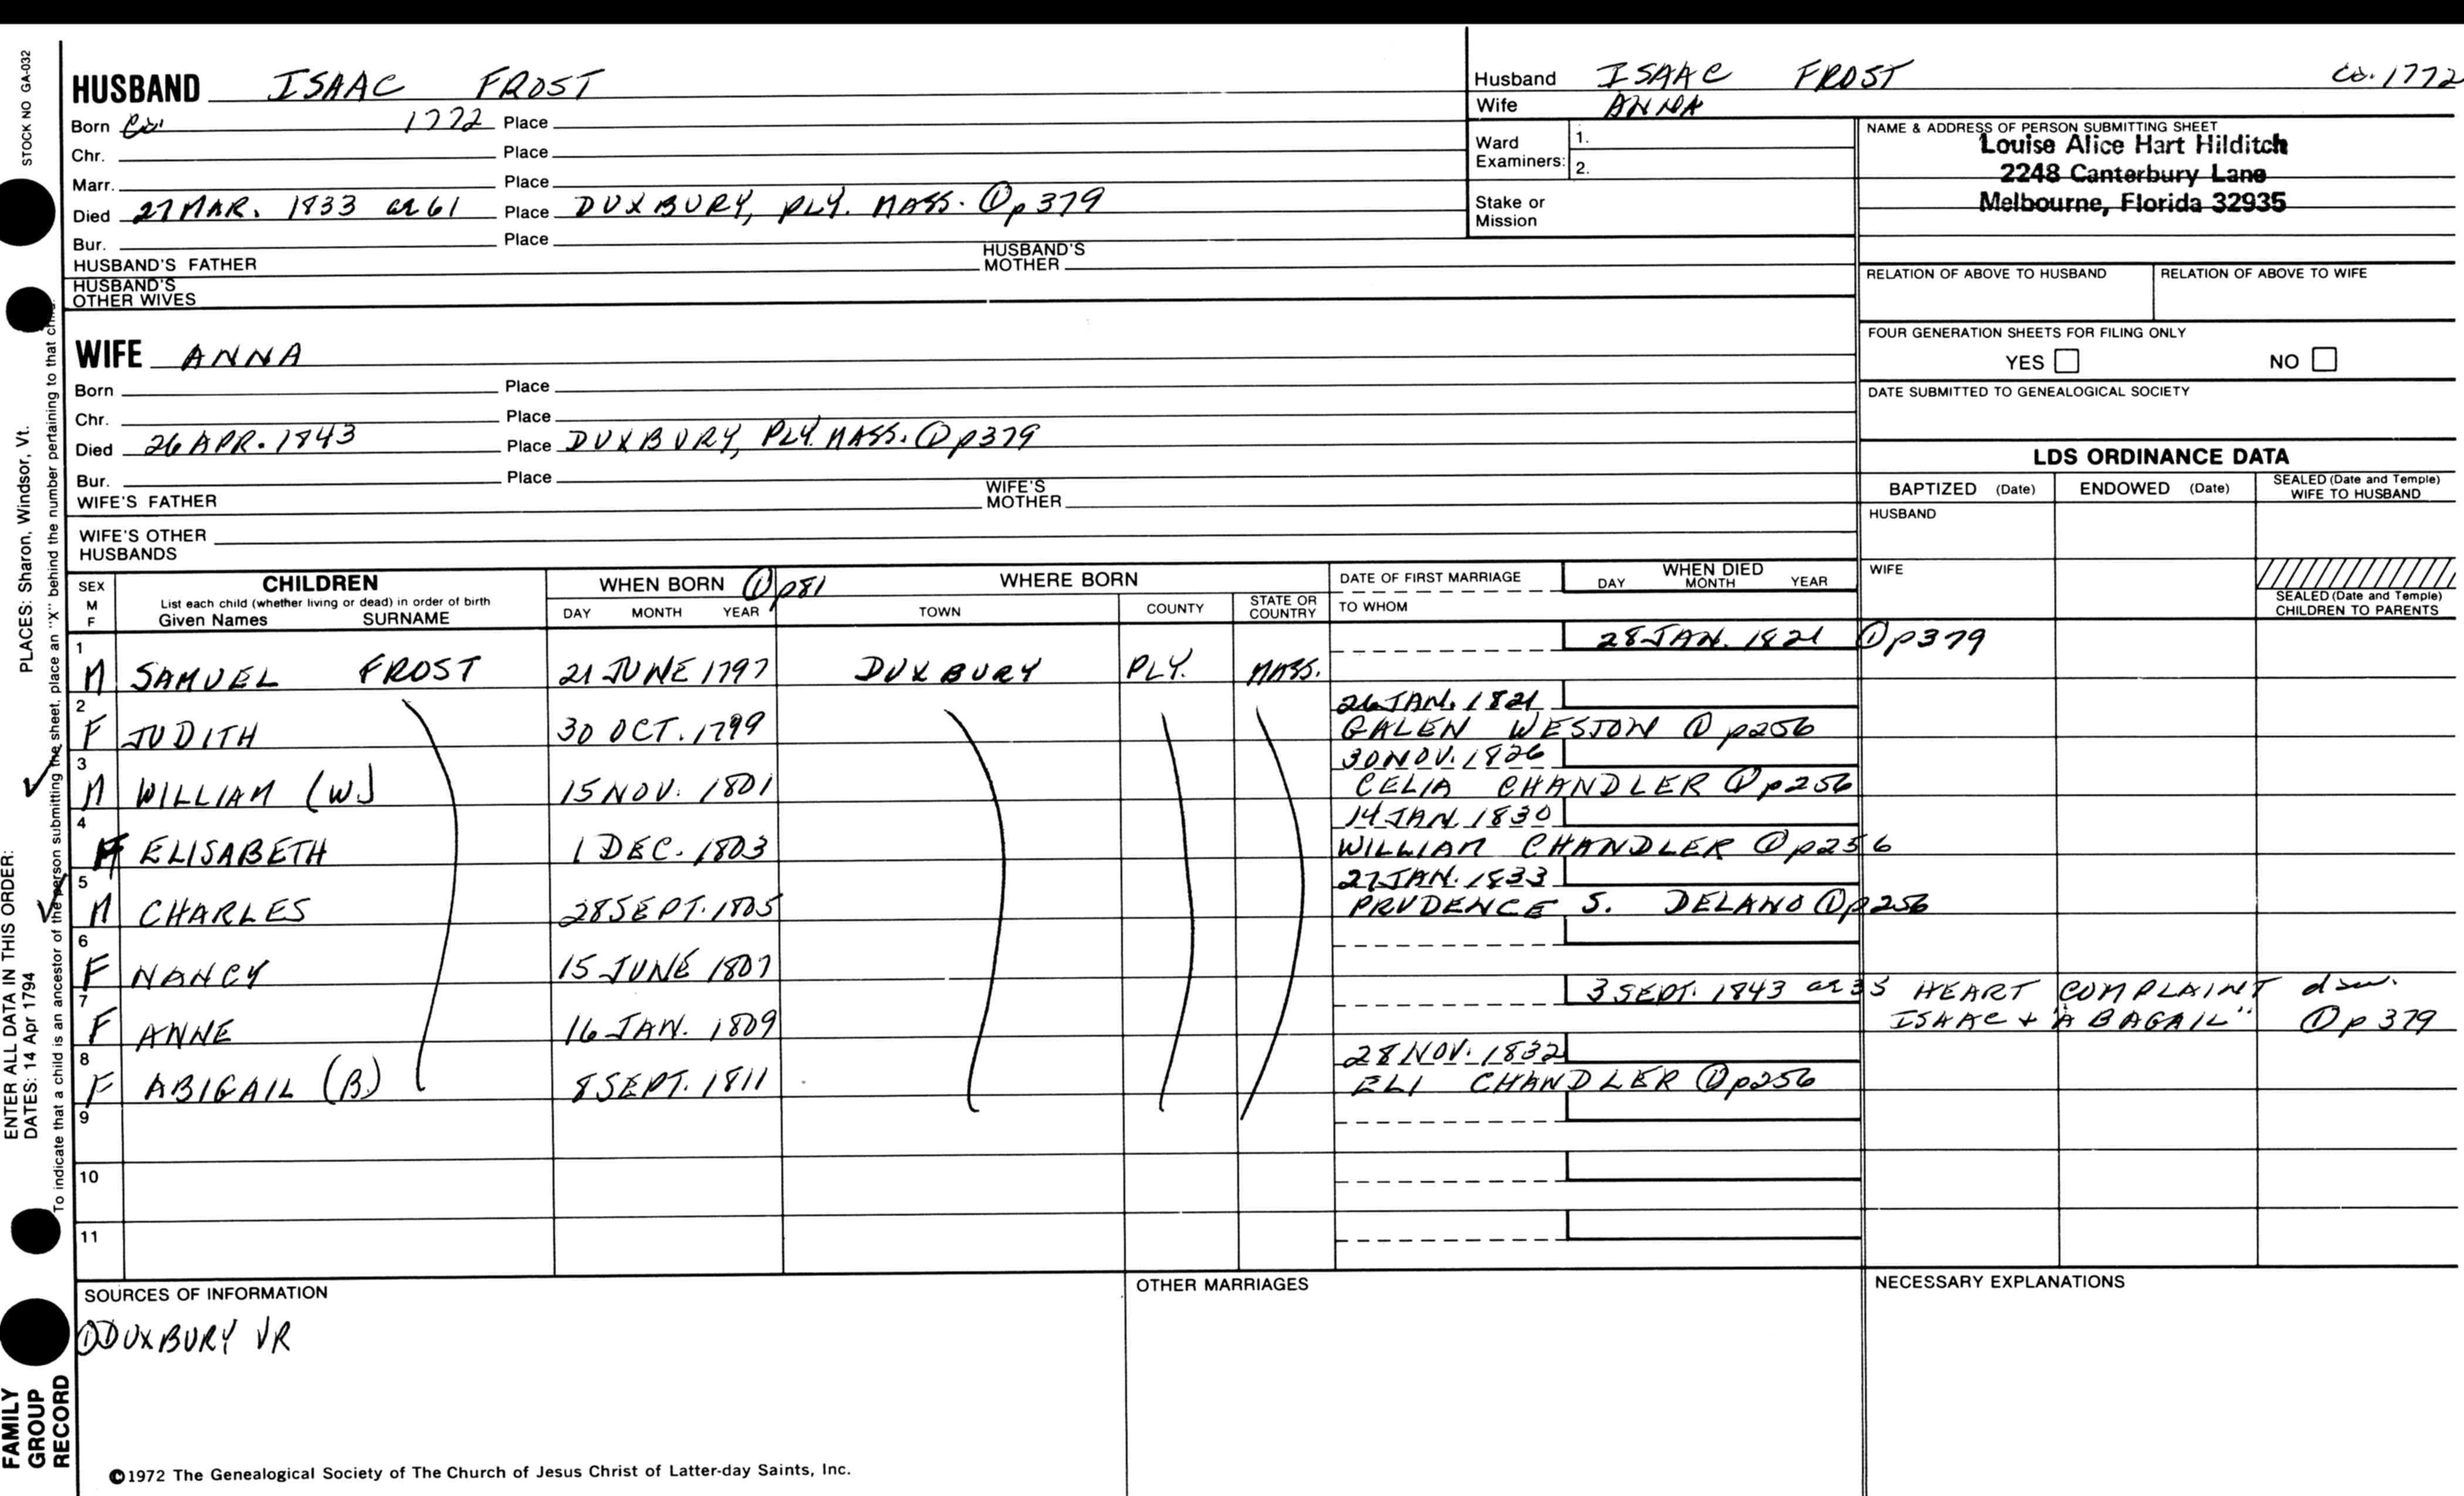 STOCK NO GA-032
HUSBAND ISAAC FROST
Born Ca. 1772 Place
Chr. Place
Marr. Place
Died 27 MAR. 1833 ae 61 Place DUXBURY, PLY. MASS. ① p 379
Bur. Place
HUSBAND'S FATHER HUSBAND'S MOTHER
HUSBAND'S OTHER WIVES
Husband ISAAC FROST Ca. 1772
Wife ANNA
Ward Examiners: 1.
2.
Stake or Mission
NAME & ADDRESS OF PERSON SUBMITTING SHEET
Louise Alice Hart Hilditch
2248 Canterbury Lane
Melbourne, Florida 32935
RELATION OF ABOVE TO HUSBAND RELATION OF ABOVE TO WIFE
FOUR GENERATION SHEETS FOR FILING ONLY
YES NO
DATE SUBMITTED TO GENEALOGICAL SOCIETY
WIFE ANNA
Born Place
Chr. Place
Died 26 APR. 1843 Place DUXBURY, PLY. MASS. ① p379
Bur. Place
WIFE'S FATHER WIFE'S MOTHER
WIFE'S OTHER HUSBANDS
LDS ORDINANCE DATA
BAPTIZED (Date) ENDOWED (Date) SEALED (Date and Temple) WIFE TO HUSBAND
HUSBAND
WIFE
SEALED (Date and Temple) CHILDREN TO PARENTS
SEX M F CHILDREN WHEN BORN ① p81 WHERE BORN DATE OF FIRST MARRIAGE WHEN DIED
List each child (whether living or dead) in order of birth
Given Names SURNAME DAY MONTH YEAR TOWN COUNTY STATE OR COUNTRY TO WHOM DAY MONTH YEAR
1 28 JAN. 1821 ① p379
M SAMUEL FROST 21 JUNE 1797 DUXBURY PLY. MASS.
2 26 JAN. 1821
F JUDITH 30 OCT. 1799 GALEN WESTON ① p256
3 30 NOV. 1826
M WILLIAM (W.) 15 NOV. 1801 CELIA CHANDLER ① p256
4 14 JAN 1830
F ELISABETH 1 DEC. 1803 WILLIAM CHANDLER ① p256
5 27 JAN. 1833
M CHARLES 28 SEPT. 1805 PRUDENCE S. DELANO ① p256
6
F NANCY 15 JUNE 1807
7 3 SEPT. 1843 ae 35 HEART COMPLAINT dau.
F ANNE 16 JAN. 1809 ISAAC + "ABAGAIL" ① p 379
8 28 NOV. 1832
F ABIGAIL (B.) 8 SEPT. 1811 ELI CHANDLER ① p256
9
10
11
SOURCES OF INFORMATION OTHER MARRIAGES NECESSARY EXPLANATIONS
① DUXBURY VR
©1972 The Genealogical Society of The Church of Jesus Christ of Latter-day Saints, Inc.
FAMILY GROUP RECORD
ENTER ALL DATA IN THIS ORDER:
DATES: 14 Apr 1794
PLACES: Sharon, Windsor, Vt.
To indicate that a child is an ancestor of the person submitting the sheet, place an "X" behind the number pertaining to that child.